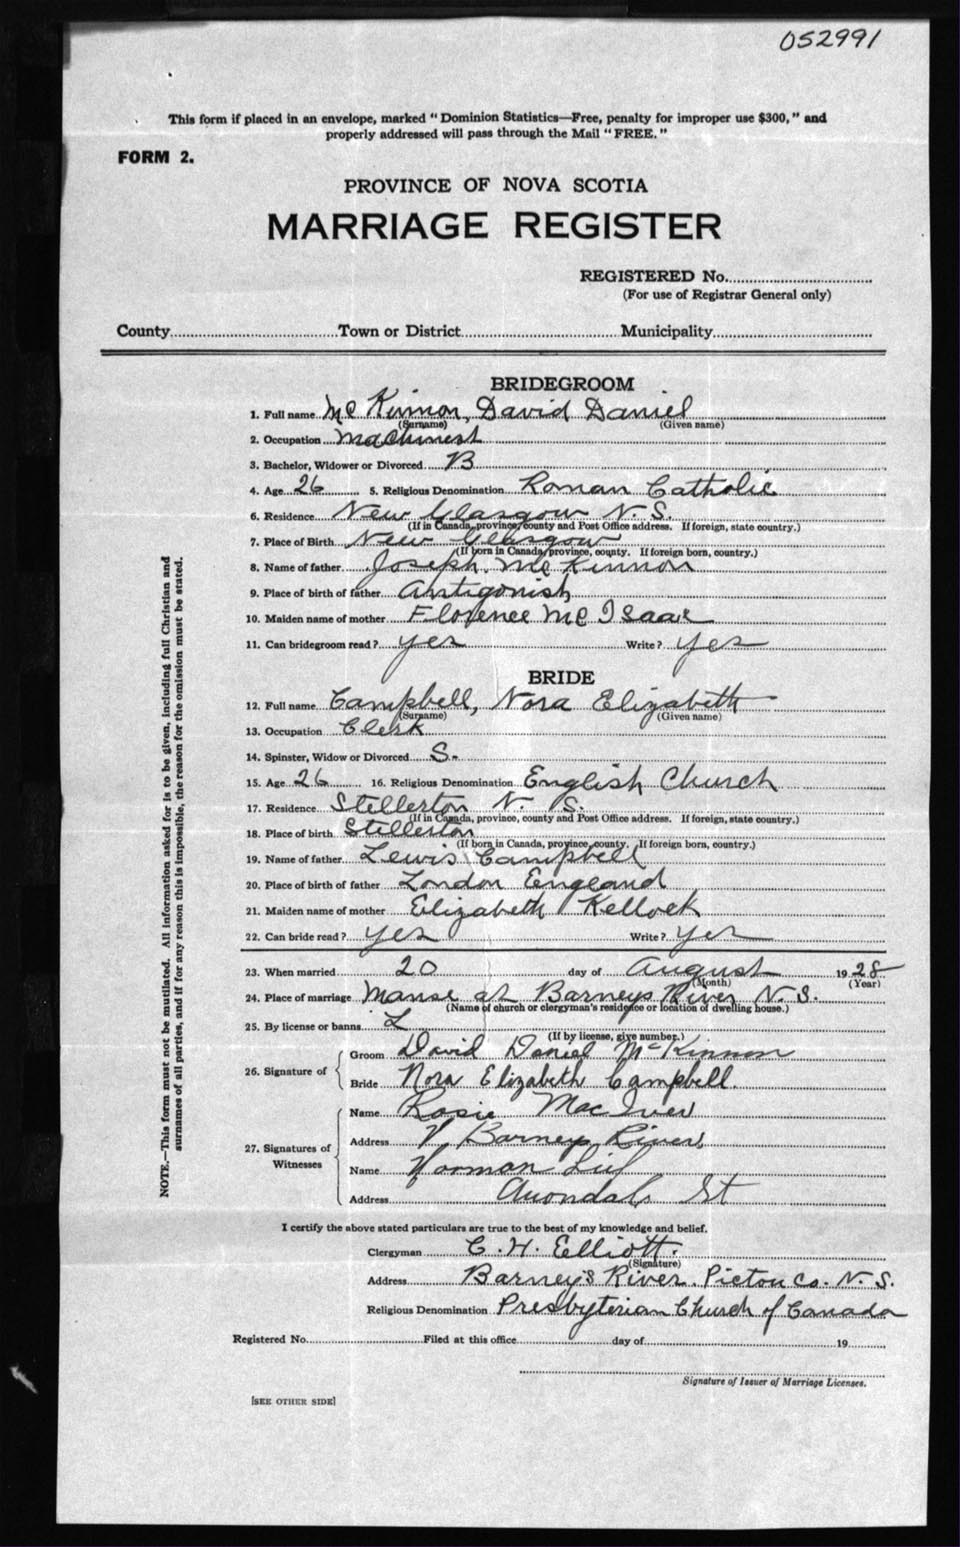 052991
This form if placed in an envelope, marked "Dominion Statistics—Free, penalty for improper use $300," and
properly addressed will pass through the Mail "FREE."
FORM 2.
PROVINCE OF NOVA SCOTIA
MARRIAGE REGISTER
REGISTERED No.
(For use of Registrar General only)
County Town or District Municipality
BRIDEGROOM
1. Full name Mc Kinnon, David Daniel
(Surname) (Given name)
2. Occupation Machinest
3. Bachelor, Widower or Divorced B
4. Age 26 5. Religious Denomination Roman Catholic
6. Residence New Glasgow N. S.
(If in Canada, province, county and Post Office address. If foreign, state country.)
7. Place of Birth New Glasgow
(If born in Canada, province, county. If foreign born, country.)
8. Name of father Joseph Mc Kinnon
9. Place of birth of father Antigonish
10. Maiden name of mother Florence Mc Isaac
11. Can bridegroom read? yes Write? yes
BRIDE
12. Full name Campbell, Nora Elizabeth
(Surname) (Given name)
13. Occupation Clerk
14. Spinster, Widow or Divorced S.
15. Age 26 16. Religious Denomination English Church
17. Residence Stellerton N. S.
(If in Canada, province, county and Post Office address. If foreign, state country.)
18. Place of birth Stellerton
(If born in Canada, province, county. If foreign born, country.)
19. Name of father Lewis Campbell
20. Place of birth of father London England
21. Maiden name of mother Elizabeth Kellock
22. Can bride read? yes Write? yes
23. When married 20 day of August 1928
(Month) (Year)
24. Place of marriage Manse at Barneys River N. S.
(Name of church or clergyman's residence or location of dwelling house.)
25. By license or banns L
(If by license, give number.)
26. Signature of
Groom David Daniel McKinnon
Bride Nora Elizabeth Campbell.
27. Signatures of Witnesses
Name Rosie MacIver
Address Barneys River
Name Norman
Address St
I certify the above stated particulars are true to the best of my knowledge and belief.
Clergyman C. H. Elliott.
(Signature)
Address Barney's River. Pictou Co. N. S.
Religious Denomination Presbyterian Church of Canada
Registered No. Filed at this office day of 19
Signature of Issuer of Marriage Licenses.
[SEE OTHER SIDE]
NOTE.—This form must not be mutilated. All information asked for is to be given, including full Christian and
surnames of all parties, and if for any reason this is impossible, the reason for the omission must be stated.